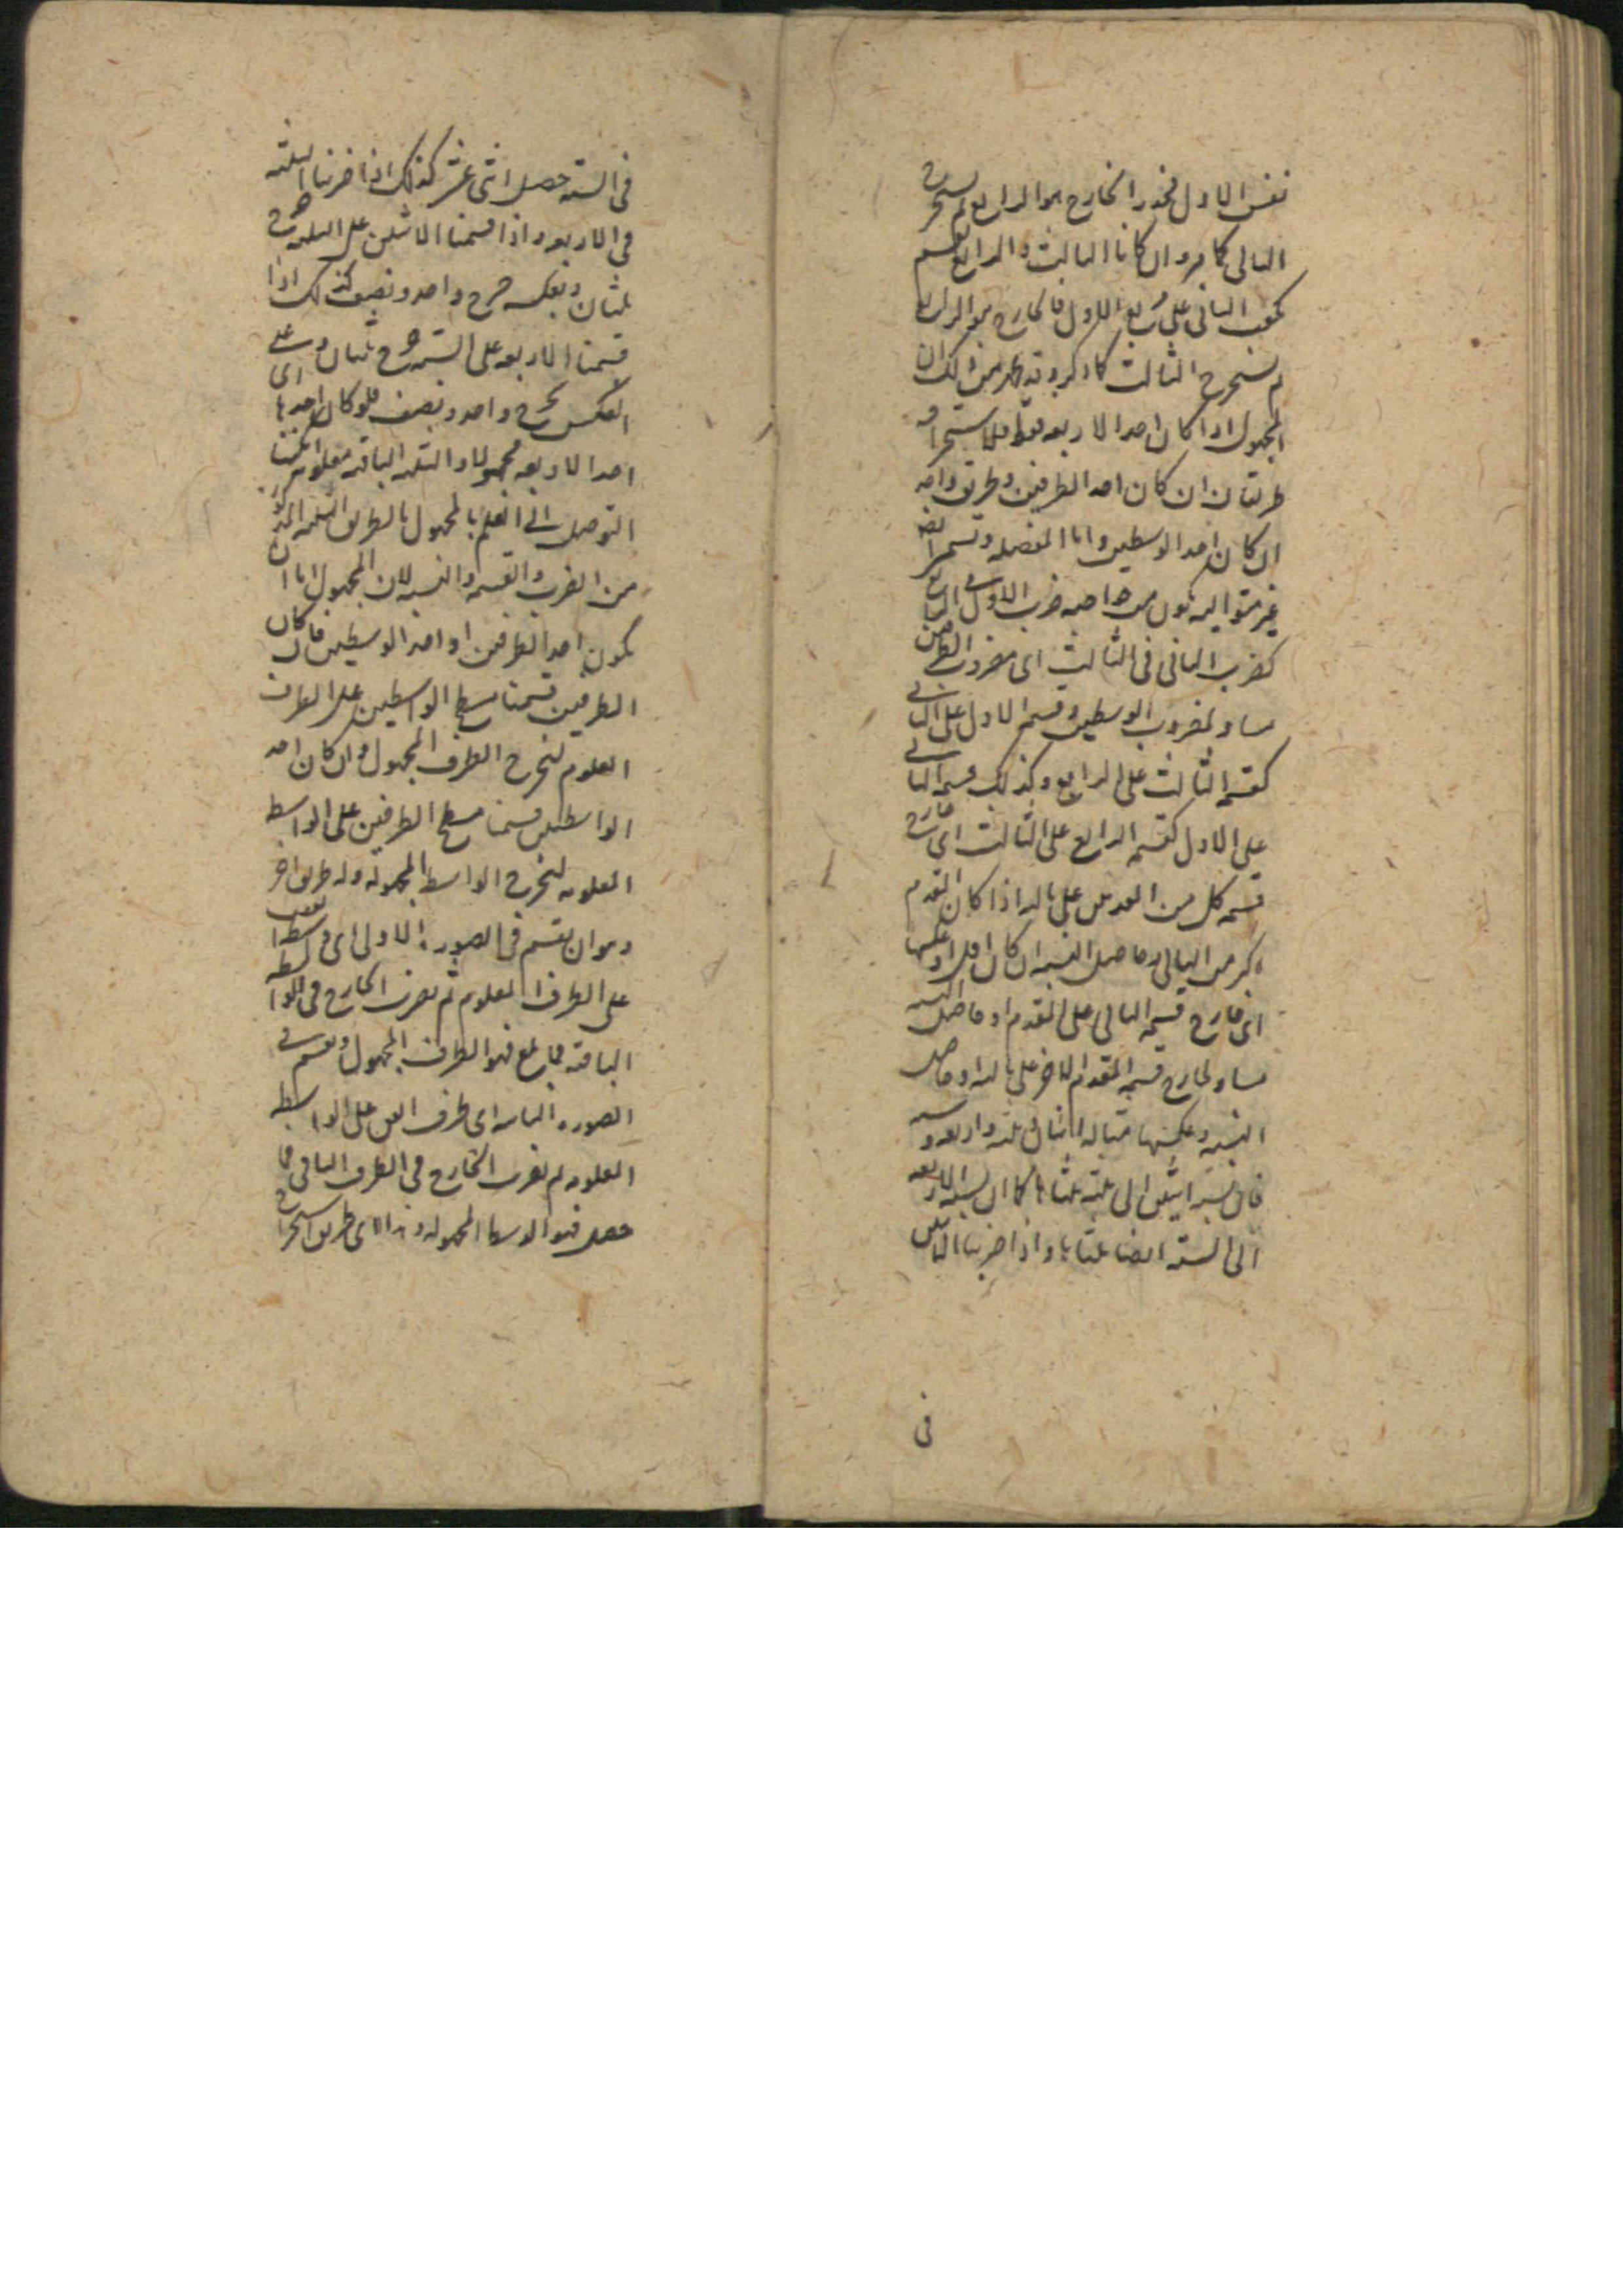 نفس الاول فجذر الخارج هو الرابع ثم يستخرج
التالى كما مر وان كانا الثالث والرابع نقسم
مكعب الثانى على مربع الاول فالخارج هو الرابع
ثم نستخرج الثالث كما ذكر وقد علم من ذلك ان
المجهول اذا كان احد الاربعه فقط فلاستخراجه
طريقان ان كان احد الطرفين وطريق واحد
ان كان احد الوسطين واما المنفصله وتسمى ايضا
غير متواليه تكون من خواصه ضرب الاول فى الرابع
كضرب الثانى فى الثالث اى مضروب الطرفين
مساو لمضروب الوسطين وقسمه الاول على الثانى
كقسمه الثالث على الرابع وكذلك قسمه الثانى
على الاول كقسمه الرابع على الثالث اى خارج
قسمه كل من العددين على تاليه اذا كان المقدم
اكبر من التالى وحاصل النسبه ان كان اقل او عكسها
اى خارج قسمه التالى على المقدم او حاصل النسبه
مساو لخارج قسمه المقدم الاخر على تاليه او حاصل
النسبه وعكسها مثاله اثنان وثلثه واربعه وسته
فان نسبه اثنين الى ثلثه ثلثاها كما ان نسبه الاربعه
الى السته ايضا ثلثاها واذا ضربنا اثنين
فى
فى السته حصل اثنى عشر كذلك اذا ضربنا الثلثه
فى الاربعه واذا قسمنا الاثنين على الثلثه خرج
ثلثان وبعكسه خرج واحد ونصف كذلك اذا
قسمنا الاربعه على السته خرج ثلثان وعلى
العكس يخرج واحد ونصف فلو كان احدها اى
احد الاربعه مجهولا والثلثه الباقيه معلومه امكننا
التوصل الى العلم بالمجهول بالطريق الثلثه المذكوره
من الضرب والقسمه والنسبه لان المجهول اما ان
يكون احد الطرفين او احد الوسطين فان كان
الطرفين قسمنا مسطح الواسطين على الطرف
المعلوم لنخرج الطرف المجهول وان كان احد
الواسطين قسمنا مسطح الطرفين على الواسط
المعلومه لنخرج الواسطه المجهوله وله طريق اخر
وهو ان نقسم فى الصوره الاولى اى فى بعض الواسطه
على الطرف المعلوم ثم نضرب الخارج فى الواسطه
الباقيه فما بلغ فهو الطرف المجهول ونقسم فى
الصوره الثانيه اى طرف العين على الواسطه
المعلومه ثم نضرب الخارج فى الطرف الباقى فما
حصل فهو الوسط المجهوله وهذا اى طريق استخراج